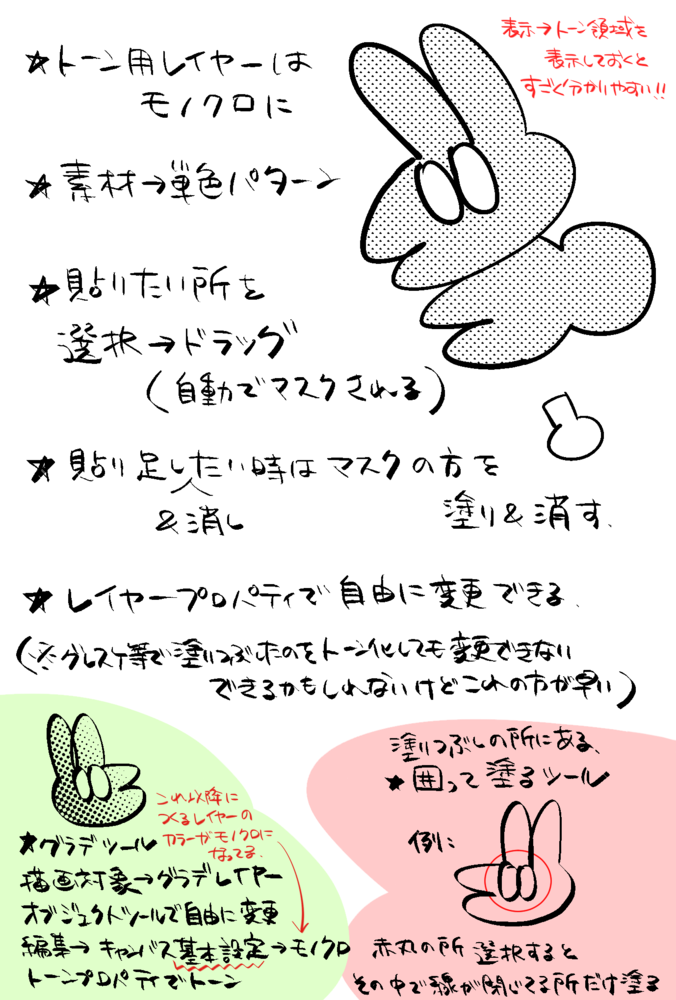 ★トーン用レイヤーは
モノクロに
表示→トーン領域を
表示しておくと
すごく分かりやすい!!
★素材→単色パターン
★貼りたい所を
選択→ドラッグ
(自動でマスクされる)
★貼り足したい時はマスクの方を
&消し
塗り&消す.
★レイヤープロパティで自由に変更できる.
(※グレスケ等で塗りつぶしたのをトーン化しても変更できない
できるかもしれないけどこれの方が早い)
これ以降に
つくるレイヤーの
カラーがモノクロに
なってる.
★グラデツール
描画対象→グラデレイヤー
オブジェクトツールで自由に変更
編集→キャンバス基本設定→モノクロ
トーンプロパティでトーン
塗りつぶしの所にある、
★囲って塗るツール
例に
赤丸の所 選択すると
その中で線が閉じてる所だけ塗る